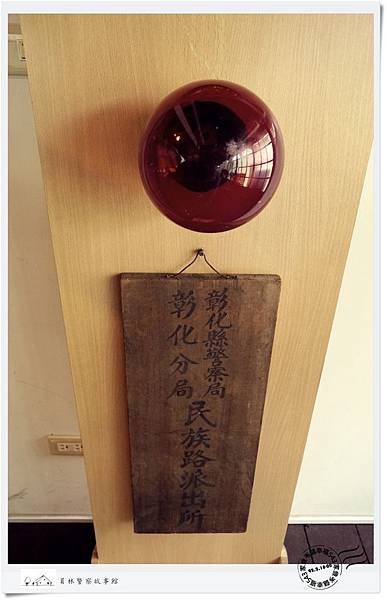 彰化縣警察局
彰化分局
民族路派出所
員林警察故事館